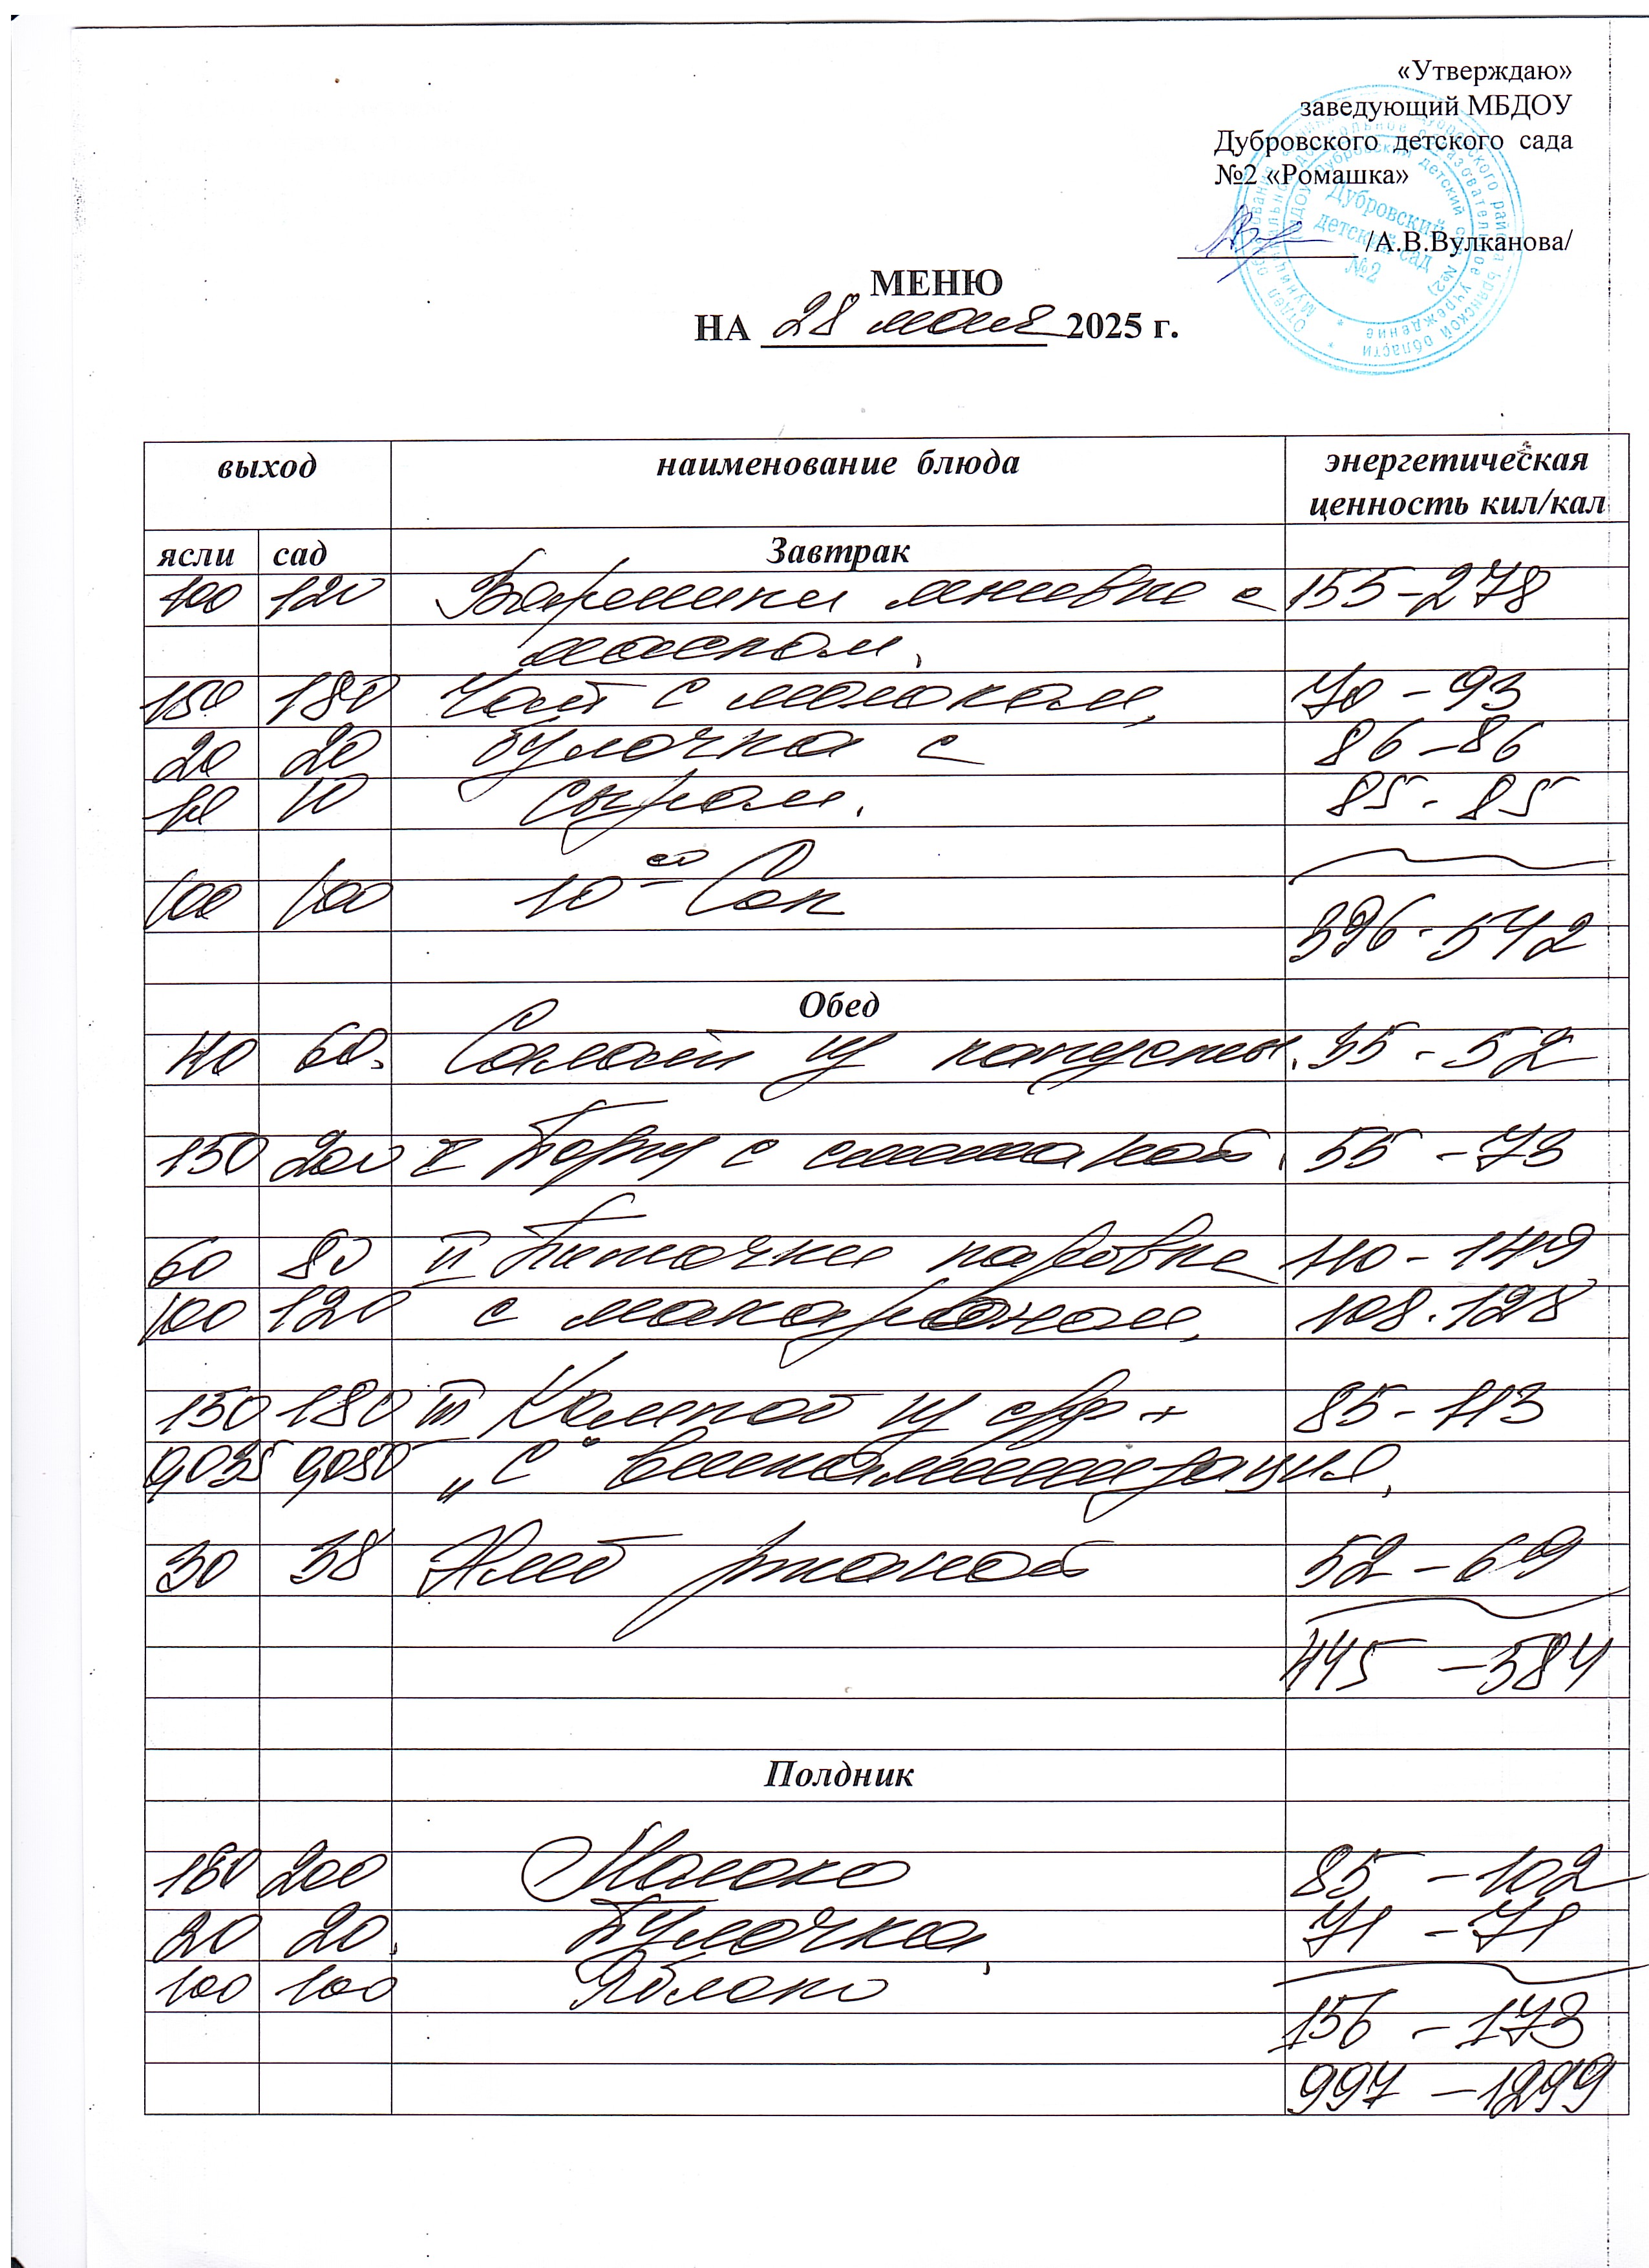 «Утверждаю»
заведующий МБДОУ
Дубровского детского сада
№2 «Ромашка»
/А.В.Вулканова/
Дубровский
детский сад
№2
МЕНЮ
НА 28 мая 2025 г.
выход наименование блюда энергетическая
ценность кил/кал
ясли сад Завтрак
100 120 Вареники ленивые с 155-278
маслом.
150 180 Чай с молоком, 70-93
20 20 Булочка с 86-86
10 10 сыром. 85-85
100 100 10 00 Сок
396-542
Обед
40 60. Салат из капусты. 35-52
150 200 I Борщ с сметаной. 55-73
60 80 II Биточки паровые 110-149
100 120 с макароном, 108-128
150 180 III Компот из с/ф + 85-113
0,035 0,050 „С" витаминизация,
30 38 Хлеб ржаной 52-69
445-584
Полдник
180 200 Молоко 85-102
20 20. Булочка, 71-71
100 100 Яблоко
156-173
997-1299